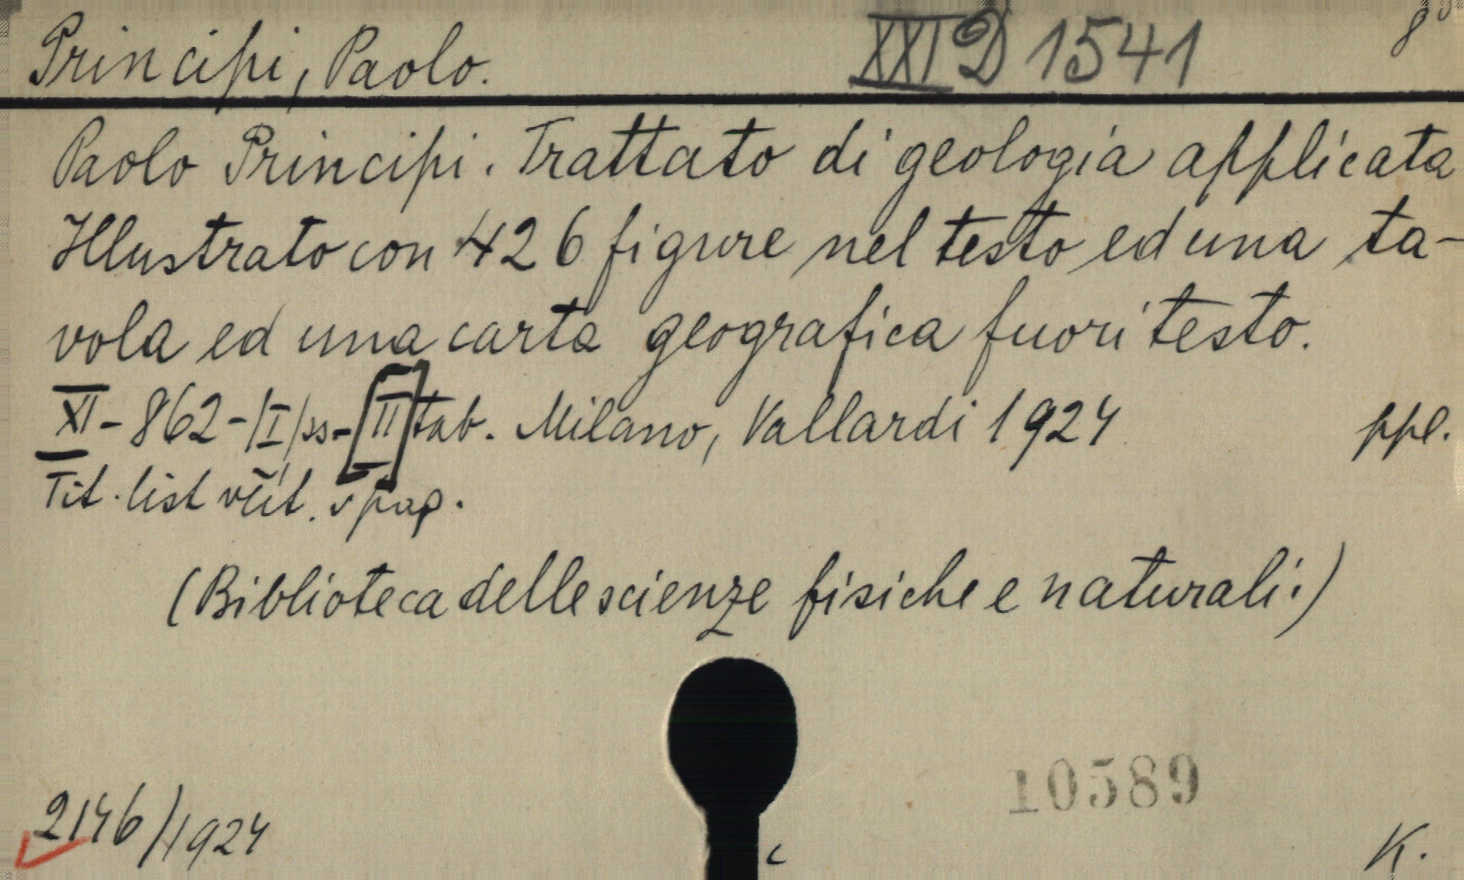 Principi, Paolo. XXI D 1541 8°
Paolo Principi. Trattato di geologia applicata
Illustrato con 426 figure nel testo ed una ta-
vola ed una carta geografica fuori testo.
XI-862-/I/ss-[II] tab. Milano, Vallardi 1924 ppl.
Tit. list včít. v pag.
(Biblioteca delle scienze fisiche e naturali.)
10589
2146/1924
K.